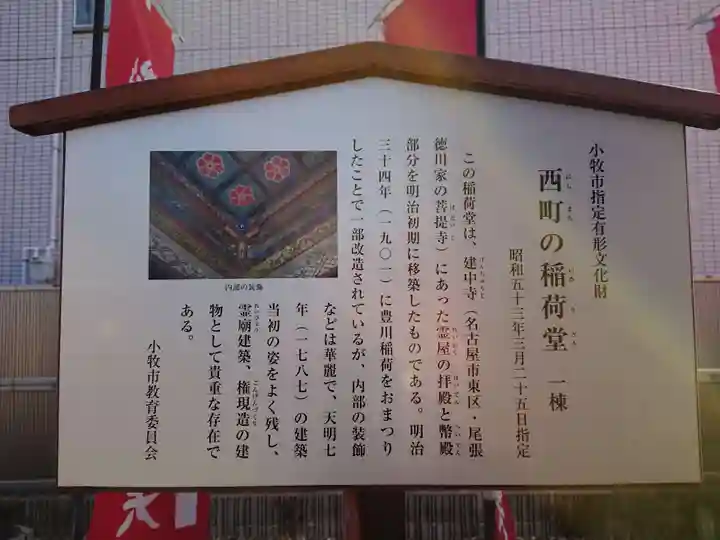 小牧市指定有形文化財
西町の稲荷堂 一棟
昭和五十三年三月二十五日指定
この稲荷堂は、建中寺（名古屋市東区・尾張
徳川家の菩提寺）にあった霊屋の拝殿と幣殿
部分を明治初期に移築したものである。明治
三十四年（一九〇一）に豊川稲荷をおまつり
したことで一部改造されているが、内部の装飾
などは華麗で、天明七
年（一七八七）の建築
当初の姿をよく残し、
霊廟建築、権現造の建
物として貴重な存在で
ある。
小牧市教育委員会
内部の装飾